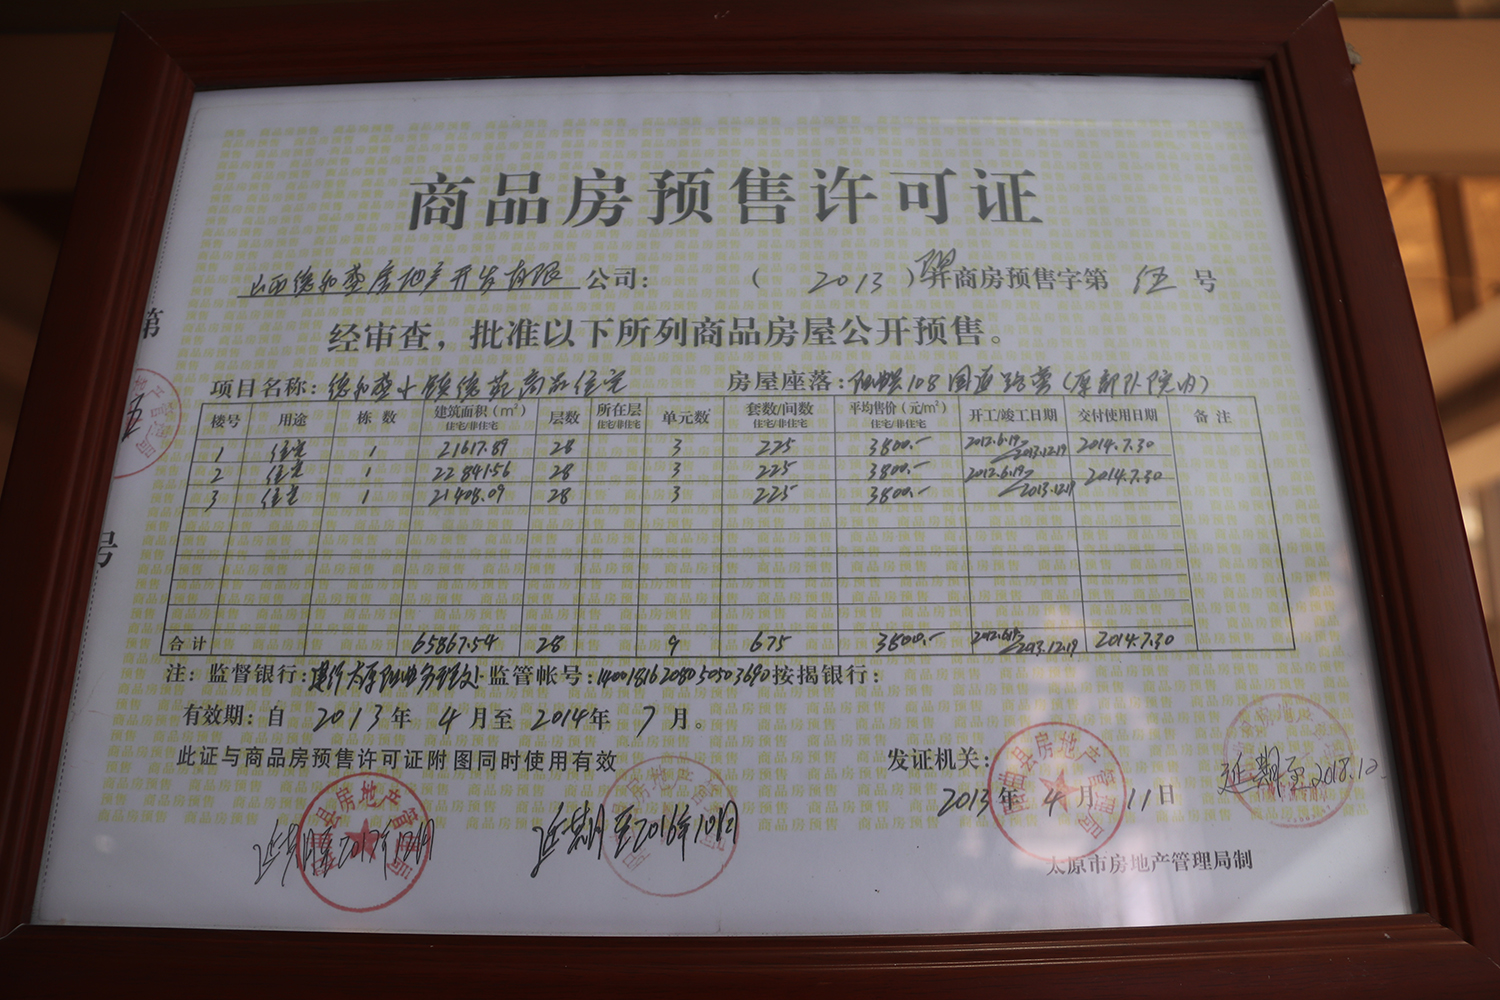 商品房预售许可证
山西德和垄房地产开发有限公司： （ 2013 ）商房预售字第 伍 号
经审查，批准以下所列商品房屋公开预售。
项目名称：德和垄小镇德苑商品住宅 房屋座落：阳曲108国道路
楼号 用途 栋 数 建筑面积（m²） 层数 所在层 单元数 套数/间数 平均售价（元/m²） 开工/竣工日期 交付使用日期 备 注
住宅/非住宅 住宅/非住宅 住宅/非住宅 住宅/非住宅
1 住宅 1 21617.89 28 3 225 3800.- 2012.6.19 2013.12.19 2014.7.30
2 住宅 1 22841.56 28 3 225 3800.- 2012.6.19 2013.12.19 2014.7.30
3 住宅 1 21408.09 28 3 225 3800.-
合 计 65867.54 28 9 675 3800.- 2012.6.19 2013.12.19 2014.7.30
注：监督银行：建行太原 监管帐号：14001816208050503690 按揭银行：
有效期：自 2013 年 4 月至 2014 年 7 月。
此证与商品房预售许可证附图同时使用有效
发证机关：
2013 年 4 月 11 日
延期至2018.12.
延期至2016年10月
延期至2017年12月
太原市房地产管理局制
第
五
号